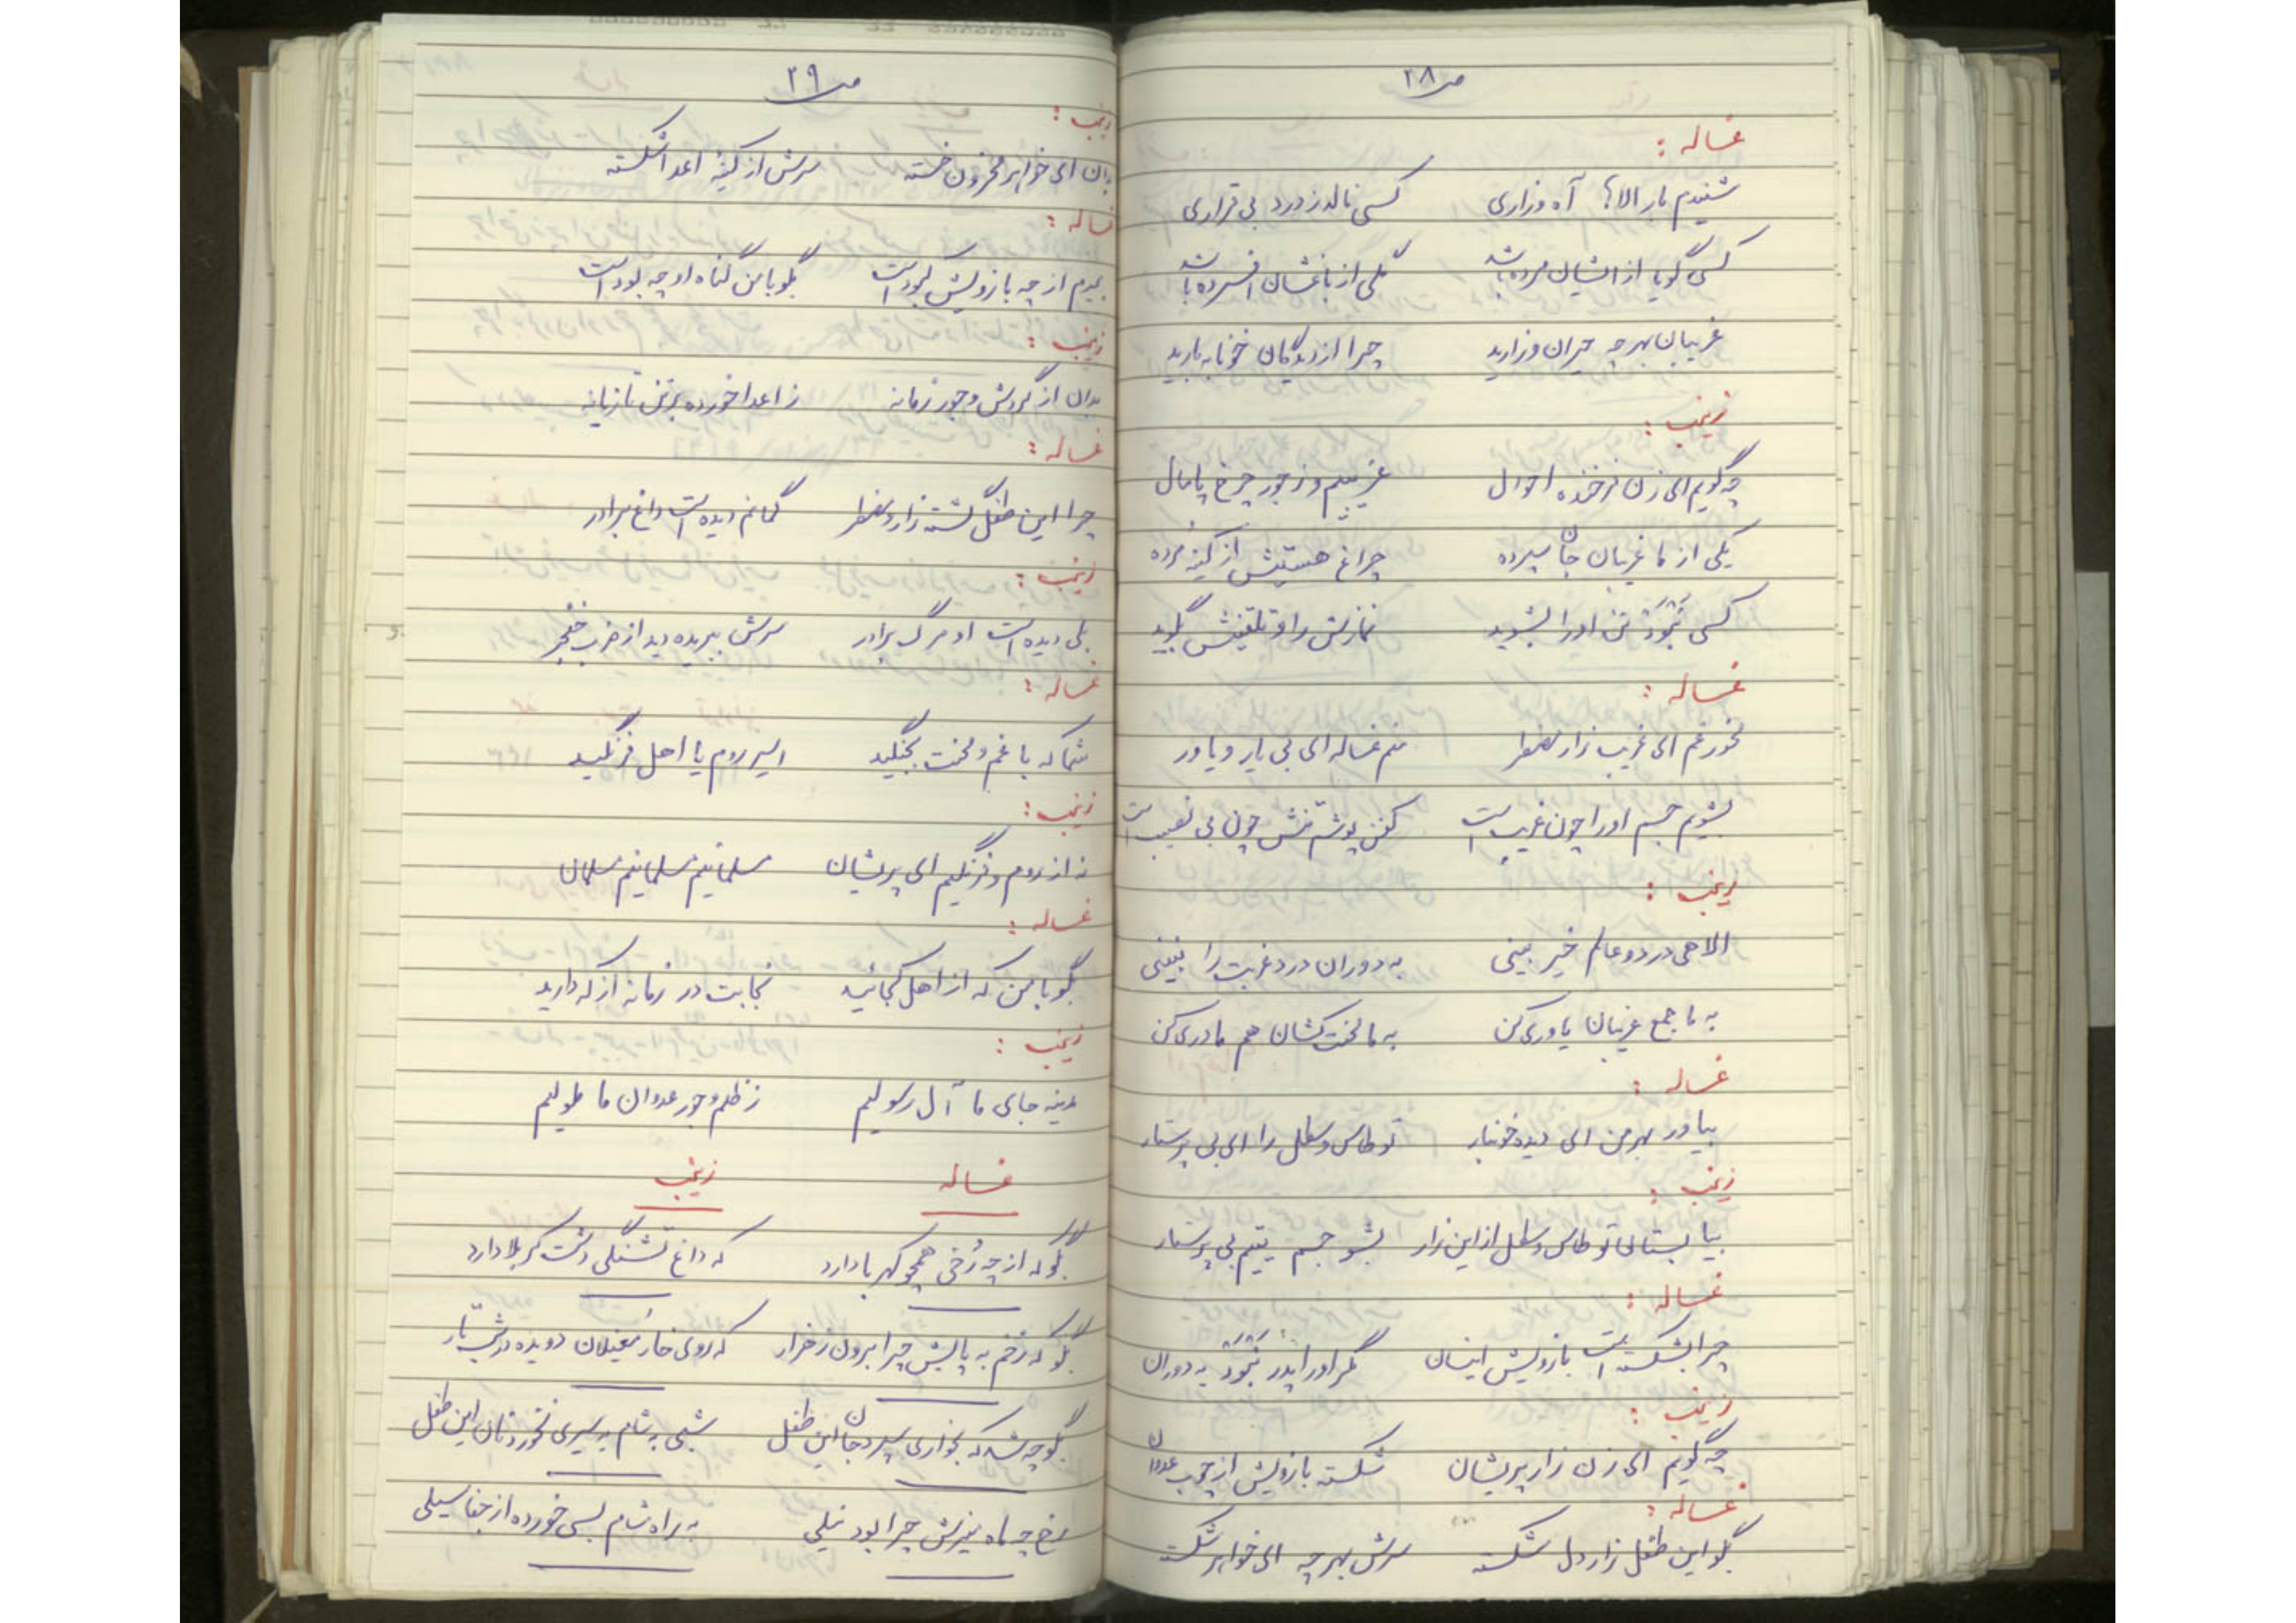 ص ۲۸
غساله :
شنیدم بار الاها آه و زاری کسی نالد ز درد بی قراری
کسی گویا از ایشان مرده باشد گلی از باغشان افسرده باشد
غریبان بهر چه حیران و زارید چرا از دیدگان خونابه بارید
زینب :
چه گویم ای زن فرخنده احوال غریبیم و ز جور چرخ پامال
یکی از ما غریبان جان سپرده چراغ هستیش از کینه مرده
کسی نبود تن او را بشوید نمازش را و تلقینش بگوید
غساله :
مخور غم ای غریب زار مضطر منم غساله ای بی یار و یاور
بشویم جسم او را چون غریب است کفن پوشم تنش چون بی نصیب است
زینب :
الاهی در دو عالم خیر بینی به دوران درد غربت را نبینی
به ما جمع غریبان یاوری کن به ما محنت کشان هم مادری کن
غساله :
بیاور بهر من ای دیده خونبار تو طاس و سطل را ای بی پرستار
زینب :
بیا بستان تو طاس و سطل از این زار بشو جسم یتیم بی پرستار
غساله :
چرا بشکسته است بازویش اینسان مگر او را پدر نبود به دوران
زینب :
چه گویم ای زن زار پریشان شکسته بازویش از چوب عدوان
غساله :
بگو این طفل زار دل شکسته سرش بهر چه ای خواهر شکسته
ص ۲۹
زینب :
بدان ای خواهر محزون خسته سرش از کینهٔ اعدا شکسته
غساله :
بمیرم از چه بازویش کبود است بگو با من گناه او چه بود است
زینب :
بدان از گردش و جور زمانه ز اعدا خورده بر تن تازیانه
غساله :
چرا این طفل گشته زار و مضطر گمانم دیده است داغ برادر
زینب :
بلی دیده است او مرگ برادر سرش ببریده دید از ضرب خنجر
غساله :
شما که با غم و محنت بجنگید اسیر روم یا اهل فرنگید
زینب :
نه از روم و فرنگیم ای پریشان مسلمانیم مسلمانیم مسلمان
غساله :
بگو با من که از اهل کجائید نجابت در زمانه از که دارید
زینب :
مدینه جای ما آل رسولیم ز ظلم و جور عدوان ما ملولیم
غساله زینب
بگو که از چه رُخی همچو کهربا دارد که داغ تشنگی دشت کربلا دارد
بگو که زخم به پایش چرا برون ز هزار که روی خار مُغیلان دویده در شب تار
بگو چه شد که بخواری سپرد جان این طفل شبی به شام به سیری نخورد نان این طفل
رخ چه ماه منیرش چرا بود نیلی به راه شام بسی خورده از جفا سیلی